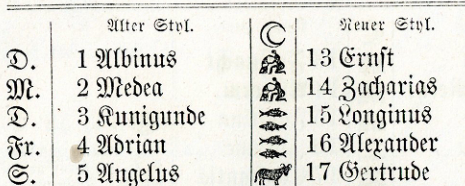 Alter Styl. Neuer Styl.
D. 1 Albinus 13 Ernst
M. 2 Medea 14 Zacharias
D. 3 Kunigunde 15 Longinus
Fr. 4 Adrian 16 Alexander
S. 5 Angelus 17 Gertrude